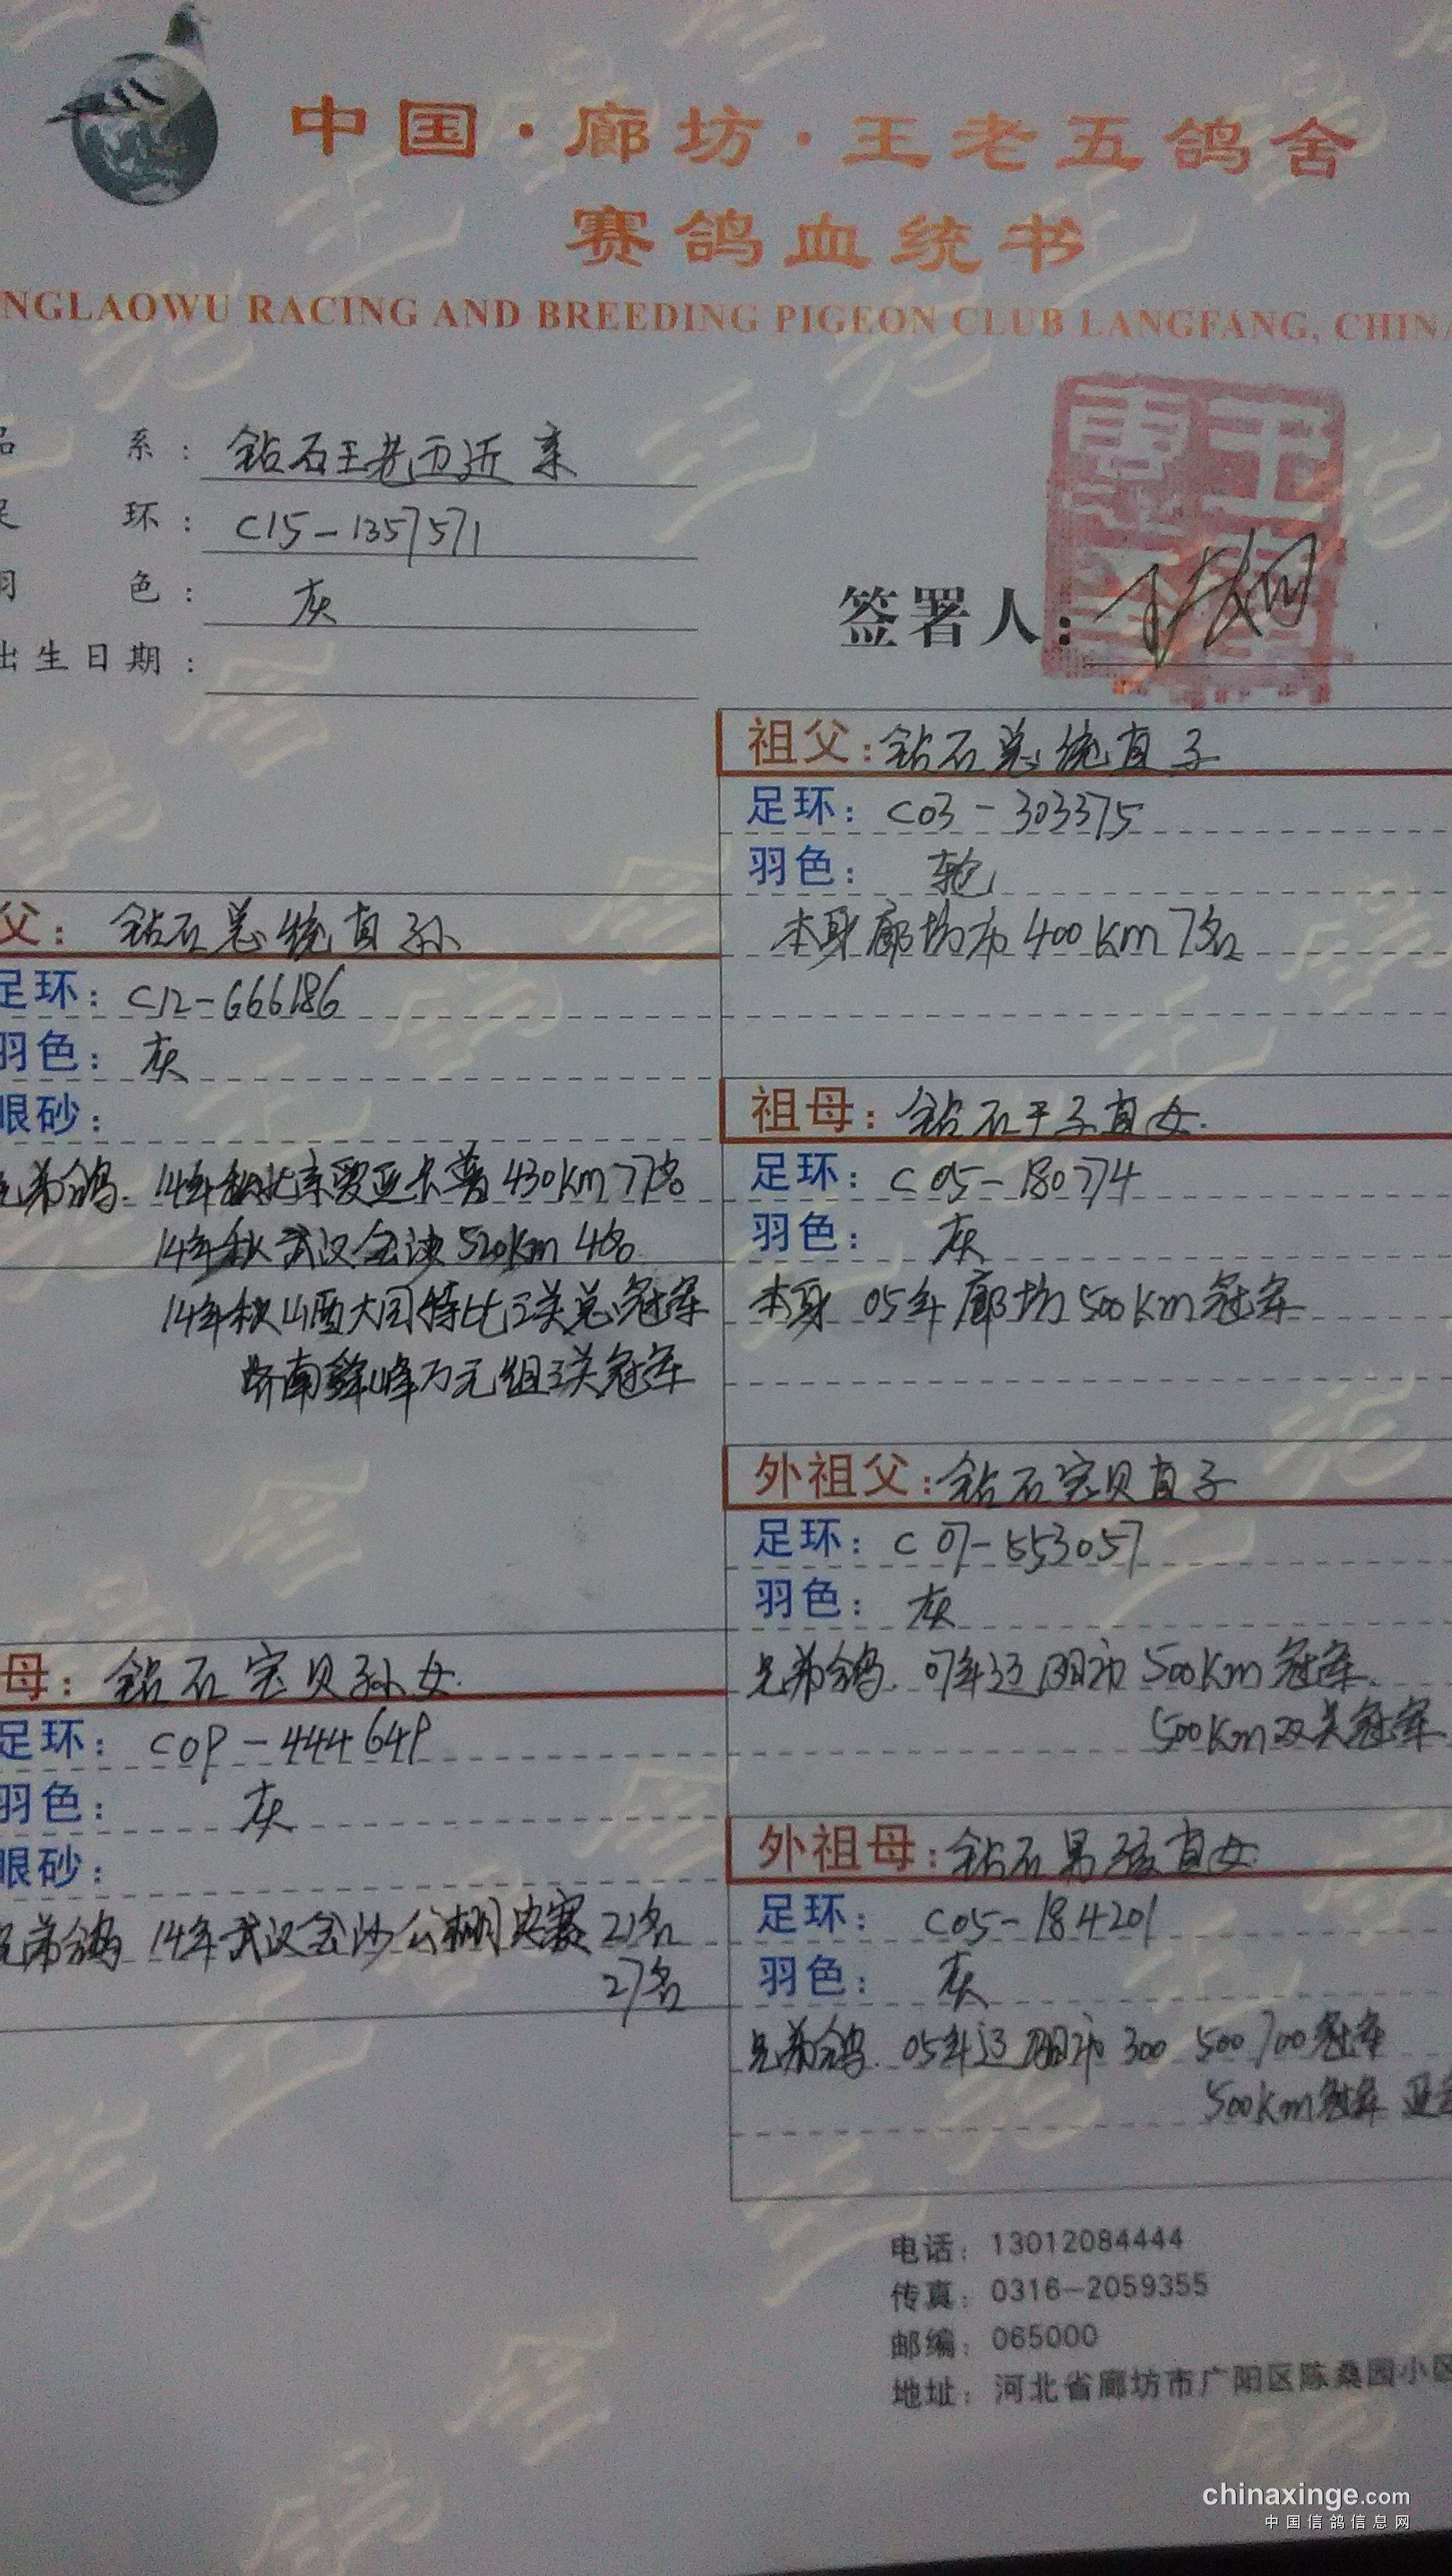 中国·廊坊·王老五鸽舍
赛鸽血统书
NGLAOWU RACING AND BREEDING PIGEON CLUB LANGFANG, CHINA
系：钻石王老五近亲
环：C15-1357571
色：灰
出生日期：
签署人：
父：钻石总统直孙
足环：C12-666186
羽色：灰
眼砂：
兄弟鸽 14年秋北京爱亚卡普430km77名
14年秋武汉金沙520km 4名
14年秋山西大同特比三关总冠军
济南鋒峰万元组三关冠军
母：钻石宝贝孙女
足环：C09-444649
羽色：灰
眼砂：
兄弟鸽 14年武汉金沙公棚决赛21名
27名
祖父：钻石总统直子
足环：C03-303375
羽色：轮
本身廊坊市400km7名
祖母：钻石王子直女
足环：C05-180774
羽色：灰
本身 05年廊坊500km冠军
外祖父：钻石宝贝直子
足环：C07-553057
羽色：灰
兄弟鸽 07年辽阳市500km冠军
500km双关冠军
外祖母：钻石男孩直女
足环：C05-184201
羽色：灰
兄弟鸽 05年辽阳市300 500 700冠军
500km冠军
电话：13012084444
传真：0316-2059355
邮编：065000
地址：河北省廊坊市广阳区陈桑园小区
chinaxinge.com
中国信鸽信息网